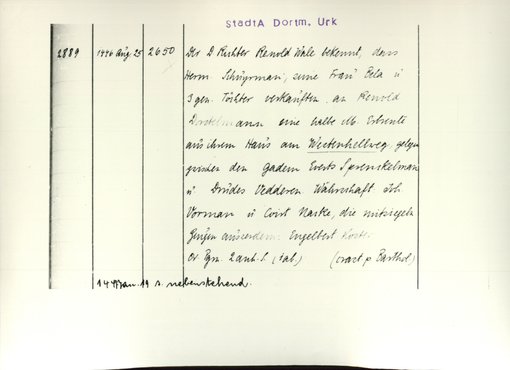 StadtA Dortm. Urk
2889 1446 Aug 25 2650 Der D Richter Renold Wale bekennt, dass
Herm. Schuyrman, seine Frau Bela u
3 gen. Töchter verkauften an Renold
Dorstelmann eine halbe M. Erbrente
aus ihrem Haus am Westenhellweg gelegen
zwischen den Gadem Everts Sprenskelman
u Drudes Vedderen Währschaft Joh
Vorman u Cort Naske, die mitsiegeln
Zeugen ausserdem Engelbert Koster
Or. Pgm. 2 anh. S.
19 s. nebenstehend.